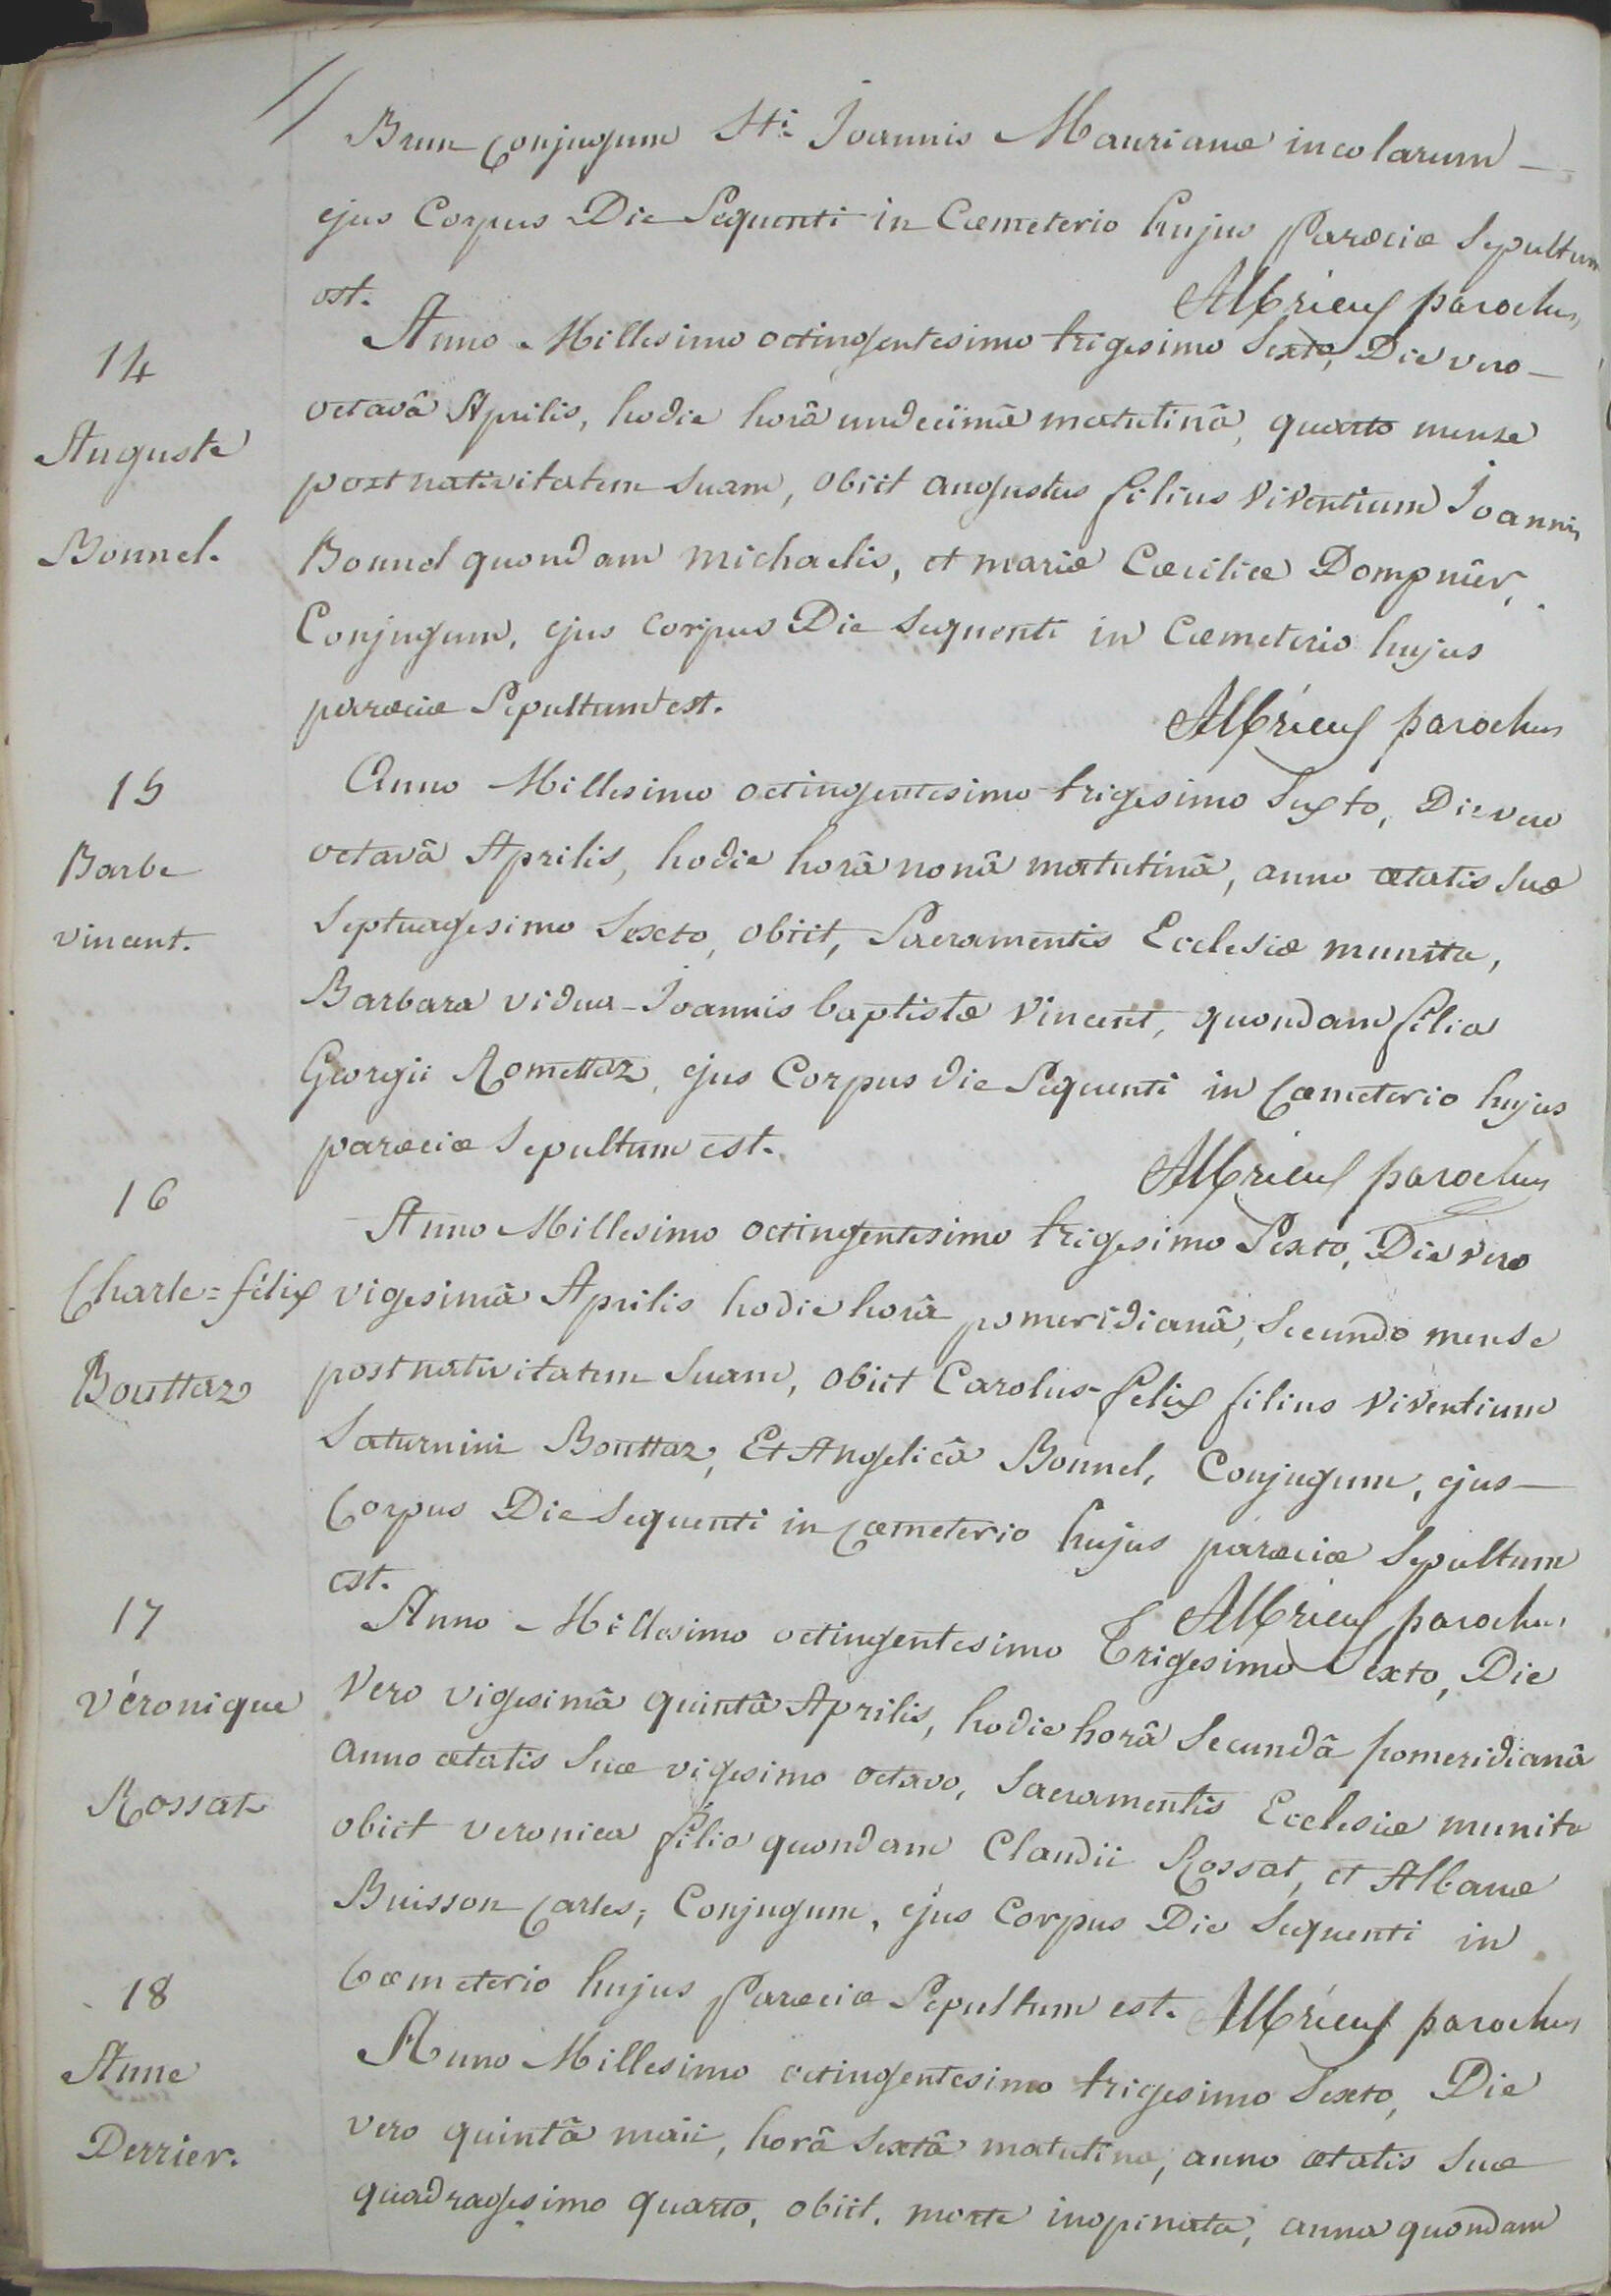 Brun Conjugum Sti Joannis Maurianæ incolarum
ejus Corpus Die Sequenti in Cæmeterio hujus Paræciæ Sepultum
est. Albrieux parochus
14
Auguste
Bonnel.
Anno Millesimo octingentesimo trigesimo Sexto, Die vero
octavâ Aprilis, hodie horâ undecimâ matutinâ, quarto mense
post nativitatem Suam, obiit augustus filius viventium Joannis
Bonnel quondam michaelis, et mariæ Cæciliæ Dompnier,
Conjugum, ejus corpus Die Sequenti in Cæmeterio hujus
paræciæ Sepultum est. Albrieux parochus
15
Barbe
vincent.
Anno Millesimo octingentesimo trigesimo Sexto, Die vero
octavâ Aprilis, hodie horâ nonâ matutinâ, anno ætatis Suæ
Septuagesimo Sexto, obiit, Sacramentis Ecclesiæ munita,
Barbara vidua Joannis baptistæ Vincent, quondam filia
Georgii Romettaz, ejus Corpus die Sequenti in Cæmeterio hujus
paræciæ Sepultum est. Albrieux parochus
16
Charle=félix
Bouttaz
Anno Millesimo octingentesimo trigesimo Sexto, Die vero
vigesimâ Aprilis hodie horâ pomeridianâ, Secundo mense
post nativitatem Suam, obiit Carolus-felix filius viventium
Saturnini Bouttaz, Et Angelicâ Bonnel, Conjugum, ejus
Corpus Die Sequenti in Cæmeterio hujus paræciæ Sepultum
est. Albrieux parochus
17
Véronique
Rossat
Anno Millesimo octingentesimo Trigesimo Sexto, Die
Vero vigesimâ quintâ Aprilis, hodie horâ Secundâ pomeridianâ
anno ætatis Suæ vigesimo octavo, Sacramentis Ecclesiæ munita
obiit veronica filia quondam Claudii Rossat, et Albanæ
Buisson Carles, Conjugum, ejus Corpus Die Sequenti in
Cæmeterio hujus Paræciæ Sepultum est. Albrieux parochus
18
Anne
Derrier.
Anno Millesimo octingentesimo trigesimo Sexto, Die
vero quintâ maii, horâ Sextâ matutina, anno ætatis Suæ
quadragesimo quarto, obiit, morte inopinata, anna quondam